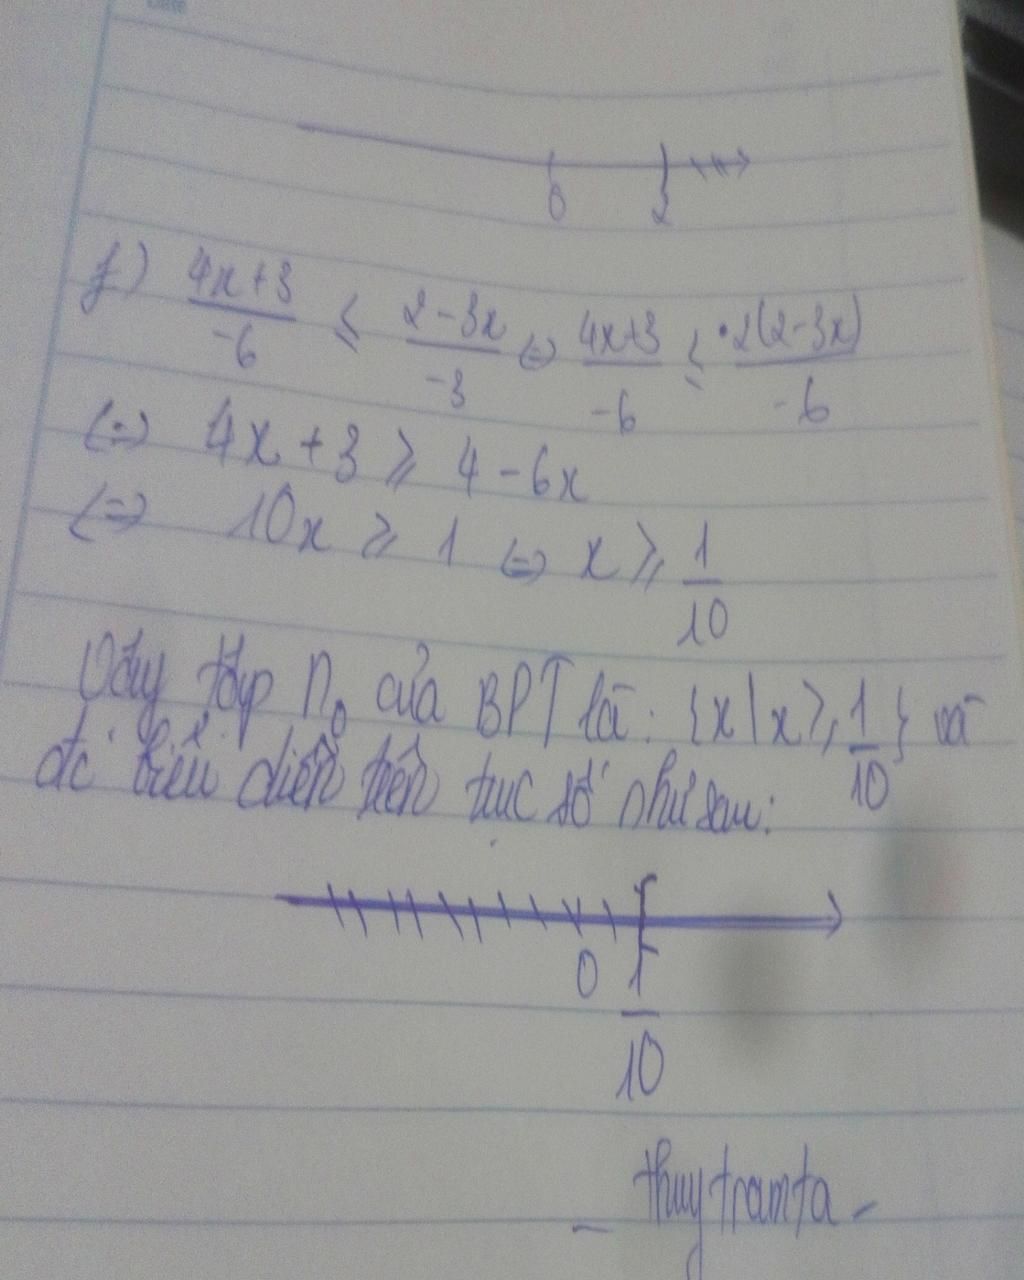 0 2
f) \frac{4x+3}{-6} ≤ \frac{2-3x}{-3} ⇔ \frac{4x+3}{-6} ≤ \frac{2(2-3x)}{-6}
⇔ 4x + 3 ≥ 4 - 6x
⇔ 10x ≥ 1 ⇔ x ≥ \frac{1}{10}
Vậy tập n₀ của BPT là: {x | x ≥ \frac{1}{10}} và
đc biểu diễn trên trục số như sau:
0 \frac{1}{10}
- thuytramta -